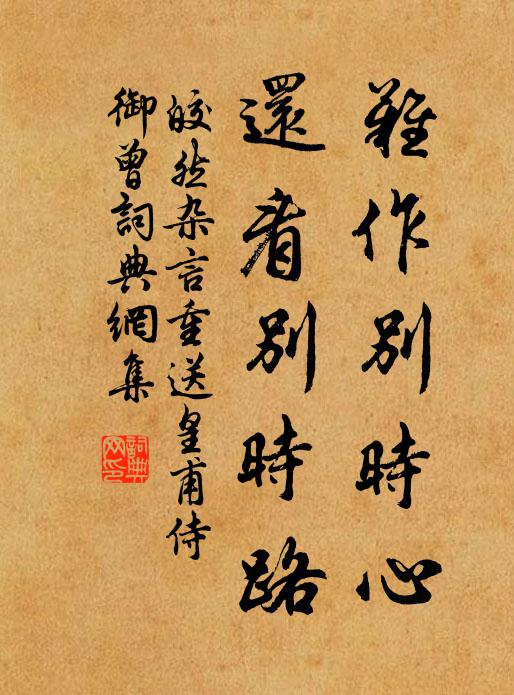 難作別時心
還看別時路
皎然杂言重送皇甫侍
御曾詞典網集
詞典
网印